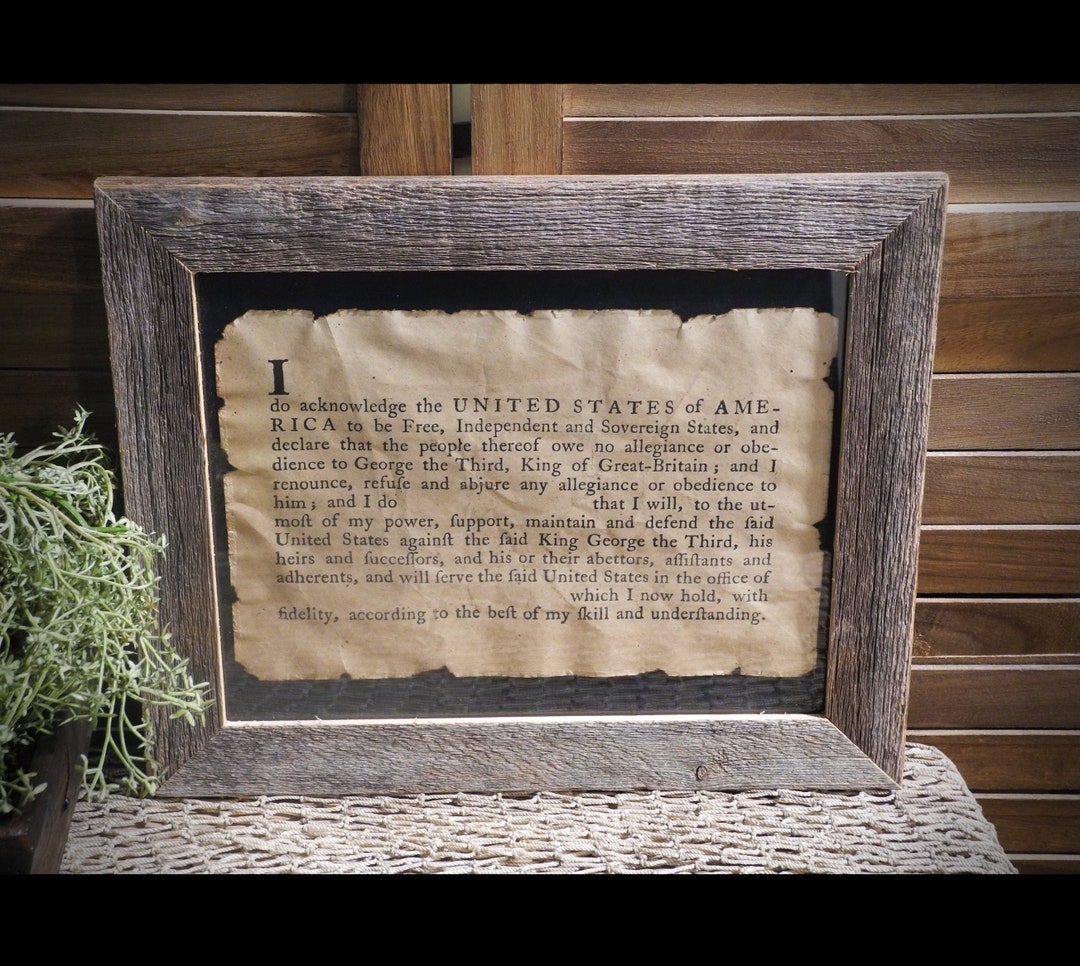 I
do acknowledge the UNITED STATES of AME-
RICA to be Free, Independent and Sovereign States, and
declare that the people thereof owe no allegiance or obe-
dience to George the Third, King of Great-Britain; and I
renounce, refuſe and abjure any allegiance or obedience to
him; and I do that I will, to the ut-
moſt of my power, ſupport, maintain and defend the ſaid
United States againſt the ſaid King George the Third, his
heirs and ſucceſſors, and his or their abettors, aſſiſtants and
adherents, and will ſerve the ſaid United States in the office of
which I now hold, with
fidelity, according to the beſt of my ſkill and underſtanding.